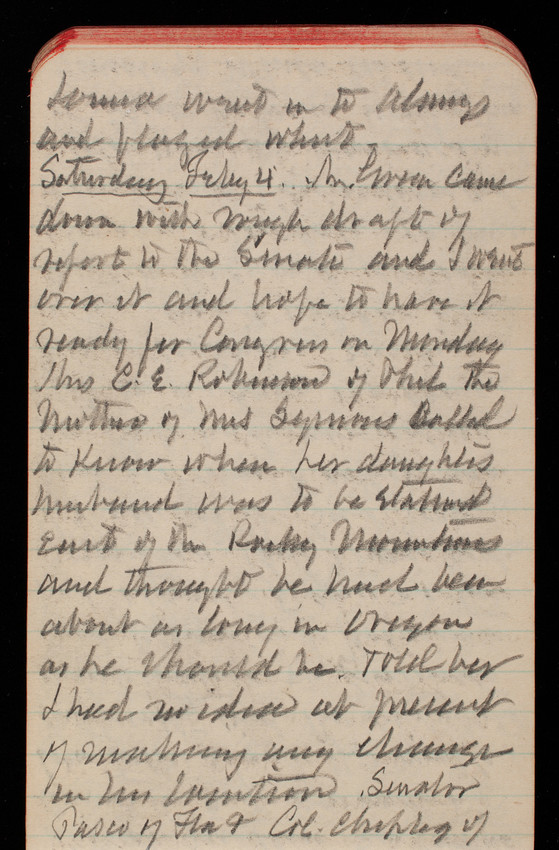 went in to Algers
and played whist
Saturday Feby 4. Mr. Green came
down with rough draft of
report to the Senate and I went
over it and hope to have it
ready for Congress on Monday
Mrs C. E. Robinson of Phil the
Mother of Mrs Seymour Called
to Know when her daughters
husband was to be Stationed
East of the Rocky Mountains
and thought he had been
about as long in Oregon
as he should be. Told her
I had no idea at present
of making any change
in his location. Senator
Pasco of Fla & Col. Chipley of